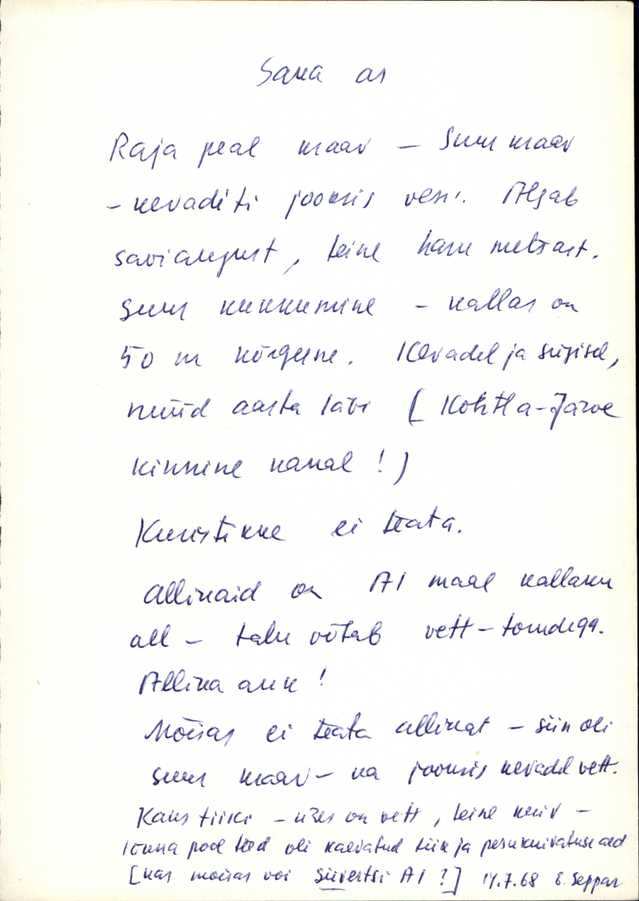 Saka as
Raja peal kraav – Suur kraav
– kevaditi jooksis vesi. Algab
saviaugust, teine haru metsast.
Suur kukkumine – kallas on
50 m kõrgune. Kevadel ja sügisel,
nüüd aasta läbi (Kohtla-Järve
kinnine kanal!)
Kuristikke ei teata.
Allikaid on Al maal kallaku
all – talu võtab vett – torudega.
Allika auk!
Mõisas ei teata allikat – siin oli
suur kraav – ka jooksis kevadel vett.
Kaks tiiki – ühes on vett, teine kuiv –
pool teed oli kaevatud tiik ja pesukuivatuse aed
[kas mõisas või Siivertsi Al?] 14.7.68 E. Seppar